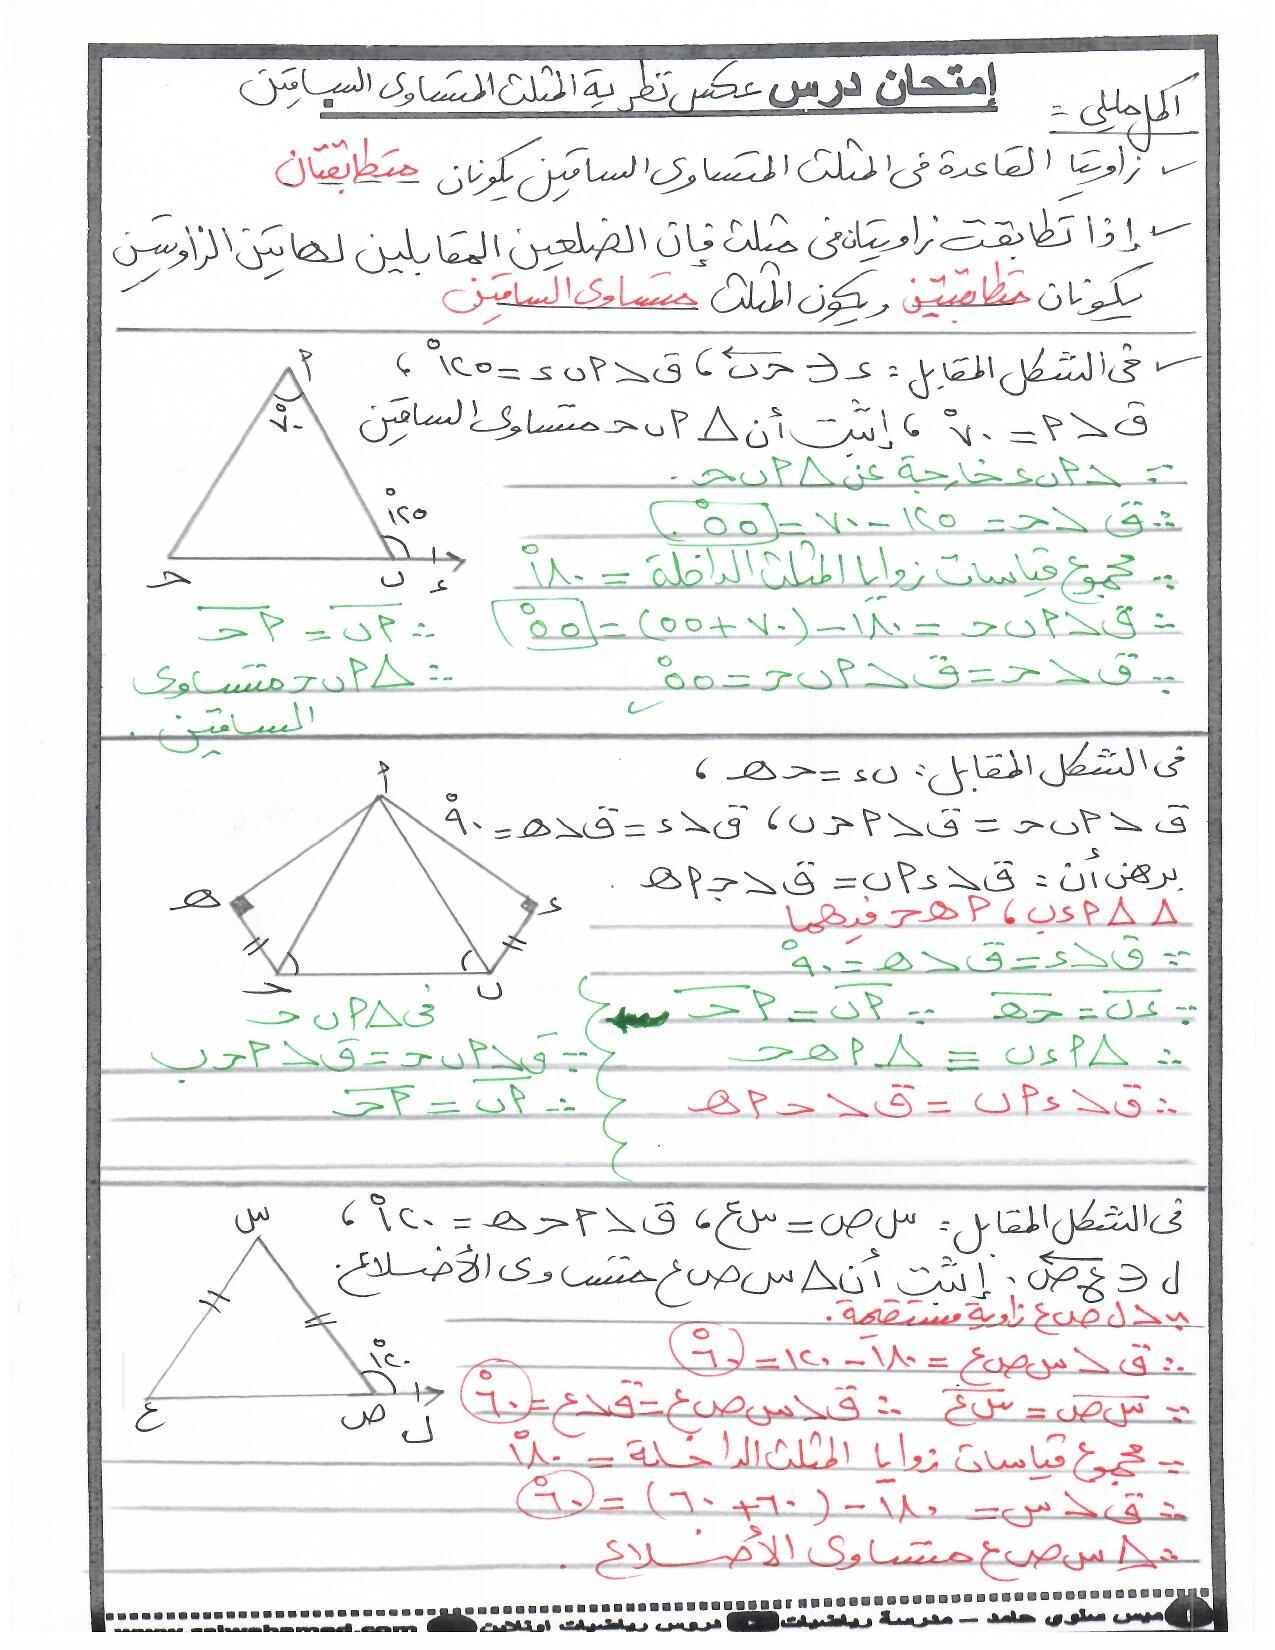 إمتحان درس عكس نظرية المثلث المتساوى الساقين
أكمل مايلى :-
زاويتا القاعدة فى المثلث المتساوى الساقين يكونان متطابقتان
إذا تطابقت زاويتان فى مثلث فإن الضلعين المقابلين لهاتين الزاويتين
يكونان متطابقين ويكون المثلث متساوى الساقين
فى الشكل المقابل: ء ∈ حب، ق∠أبء = ١٢٥°،
ق∠أ = ٧٠°، إثبت أن △أبح متساوى الساقين
∵ ∠أبء خارجة عن △أبح.
∴ ق∠ح = ١٢٥ - ٧٠ = ٥٥°
∵ مجموع قياسات زوايا المثلث الداخلة = ١٨٠°
∴ ق∠أبح = ١٨٠ - (٧٠ + ٥٥) = ٥٥°
∵ ق∠ح = ق∠أبح = ٥٥°
∴ أب = أح
∴ △أبح متساوى
الساقين.
أ
٧٠°
١٢٥°
ح ب ء
فى الشكل المقابل: بء = حه،
ق∠أبح = ق∠أحب، ق∠ء = ق∠ه = ٩٠°
برهن أن: ق∠ءأب = ق∠حأه.
△△ أءب، أهح فيهما
∵ ق∠ء = ق∠ه = ٩٠°
∵ ءب = حه ∵ أب = أح
∴ △أءب ≡ △أهح
∴ ق∠ءأب = ق∠حأه
فى △أبح
∵ ق∠أبح = ق∠أحب
∴ أب = أح
أ
ه ء
ح ب
فى الشكل المقابل: س ص = س ع، ق∠أحه = ١٢٠°،
ل ∈ ع ص. إثبت أن △س ص ع متساوى الأضلاع.
∵ ∠ل ص ع زاوية مستقيمة.
∴ ق∠س ص ع = ١٨٠ - ١٢٠ = ٦٠°
∵ س ص = س ع ∴ ق∠س ص ع = ق∠ع = ٦٠°
∵ مجموع قياسات زوايا المثلث الداخلة = ١٨٠°
∴ ق∠س = ١٨٠ - (٦٠ + ٦٠) = ٦٠°
∴ △س ص ع متساوى الأضلاع.
س
١٢٠°
ع ص ل
ميس سلوى حامد – مدرسة رياضيات دروس رياضيات اونلاين www.salwahamed.com